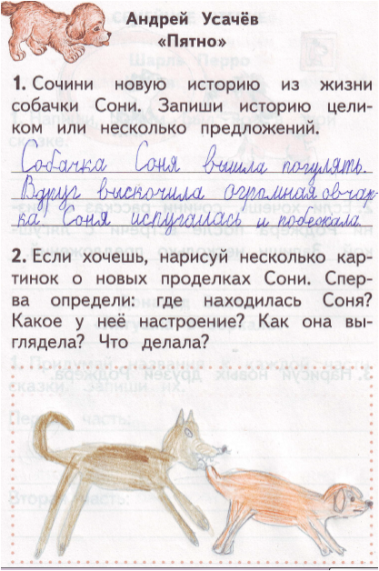 Андрей Усачёв
«Пятно»
1. Сочини новую историю из жизни
собачки Сони. Запиши историю цели-
ком или несколько предложений.
Собачка Соня вышла погулять.
Вдруг выскочила огромная овчар-
ка. Соня испугалась и побежала
2. Если хочешь, нарисуй несколько кар-
тинок о новых проделках Сони. Спер-
ва определи: где находилась Соня?
Какое у неё настроение? Как она вы-
глядела? Что делала?